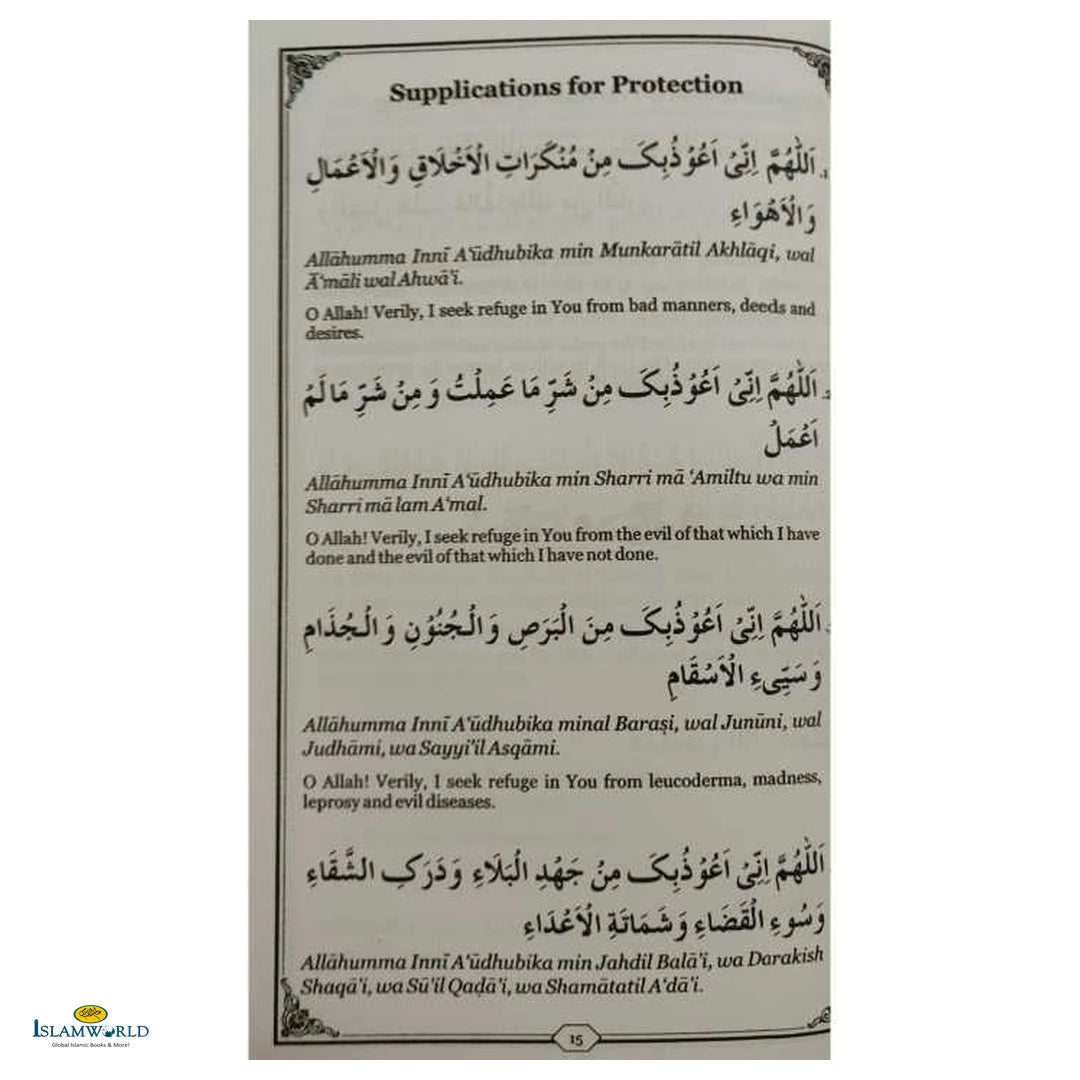 Supplications for Protection
اَللّٰهُمَّ اِنِّیْ اَعُوْذُبِکَ مِنْ مُنْکَرَاتِ الْاَخْلَاقِ وَالْاَعْمَالِ
وَالْاَهْوَاءِ
Allāhumma Innī A‘ūdhubika min Munkarātil Akhlāqi, wal
Ā‘māli wal Ahwā’i.
O Allah! Verily, I seek refuge in You from bad manners, deeds and
desires.
اَللّٰهُمَّ اِنِّیْ اَعُوْذُبِکَ مِنْ شَرِّ مَا عَمِلْتُ وَمِنْ شَرِّ مَا لَمْ
اَعْمَلْ
Allāhumma Innī A‘ūdhubika min Sharri mā ‘Amiltu wa min
Sharri mā lam A‘mal.
O Allah! Verily, I seek refuge in You from the evil of that which I have
done and the evil of that which I have not done.
اَللّٰهُمَّ اِنِّیْ اَعُوْذُبِکَ مِنَ الْبَرَصِ وَالْجُنُوْنِ وَالْجُذَامِ
وَسَیِّیءِ الْاَسْقَامِ
Allāhumma Innī A‘ūdhubika minal Baraṣi, wal Junūni, wal
Judhāmi, wa Sayyi’il Asqāmi.
O Allah! Verily, I seek refuge in You from leucoderma, madness,
leprosy and evil diseases.
اَللّٰهُمَّ اِنِّیْ اَعُوْذُبِکَ مِنْ جَهْدِ الْبَلَاءِ وَدَرَکِ الشَّقَاءِ
وَسُوءِ الْقَضَاءِ وَشَمَاتَةِ الْاَعْدَاءِ
Allāhumma Innī A‘ūdhubika min Jahdil Balā’i, wa Darakish
Shaqā’i, wa Sū’il Qaḍā’i, wa Shamātatil A‘dā’i.
15
ISLAMWORLD
Global Islamic Books & More!